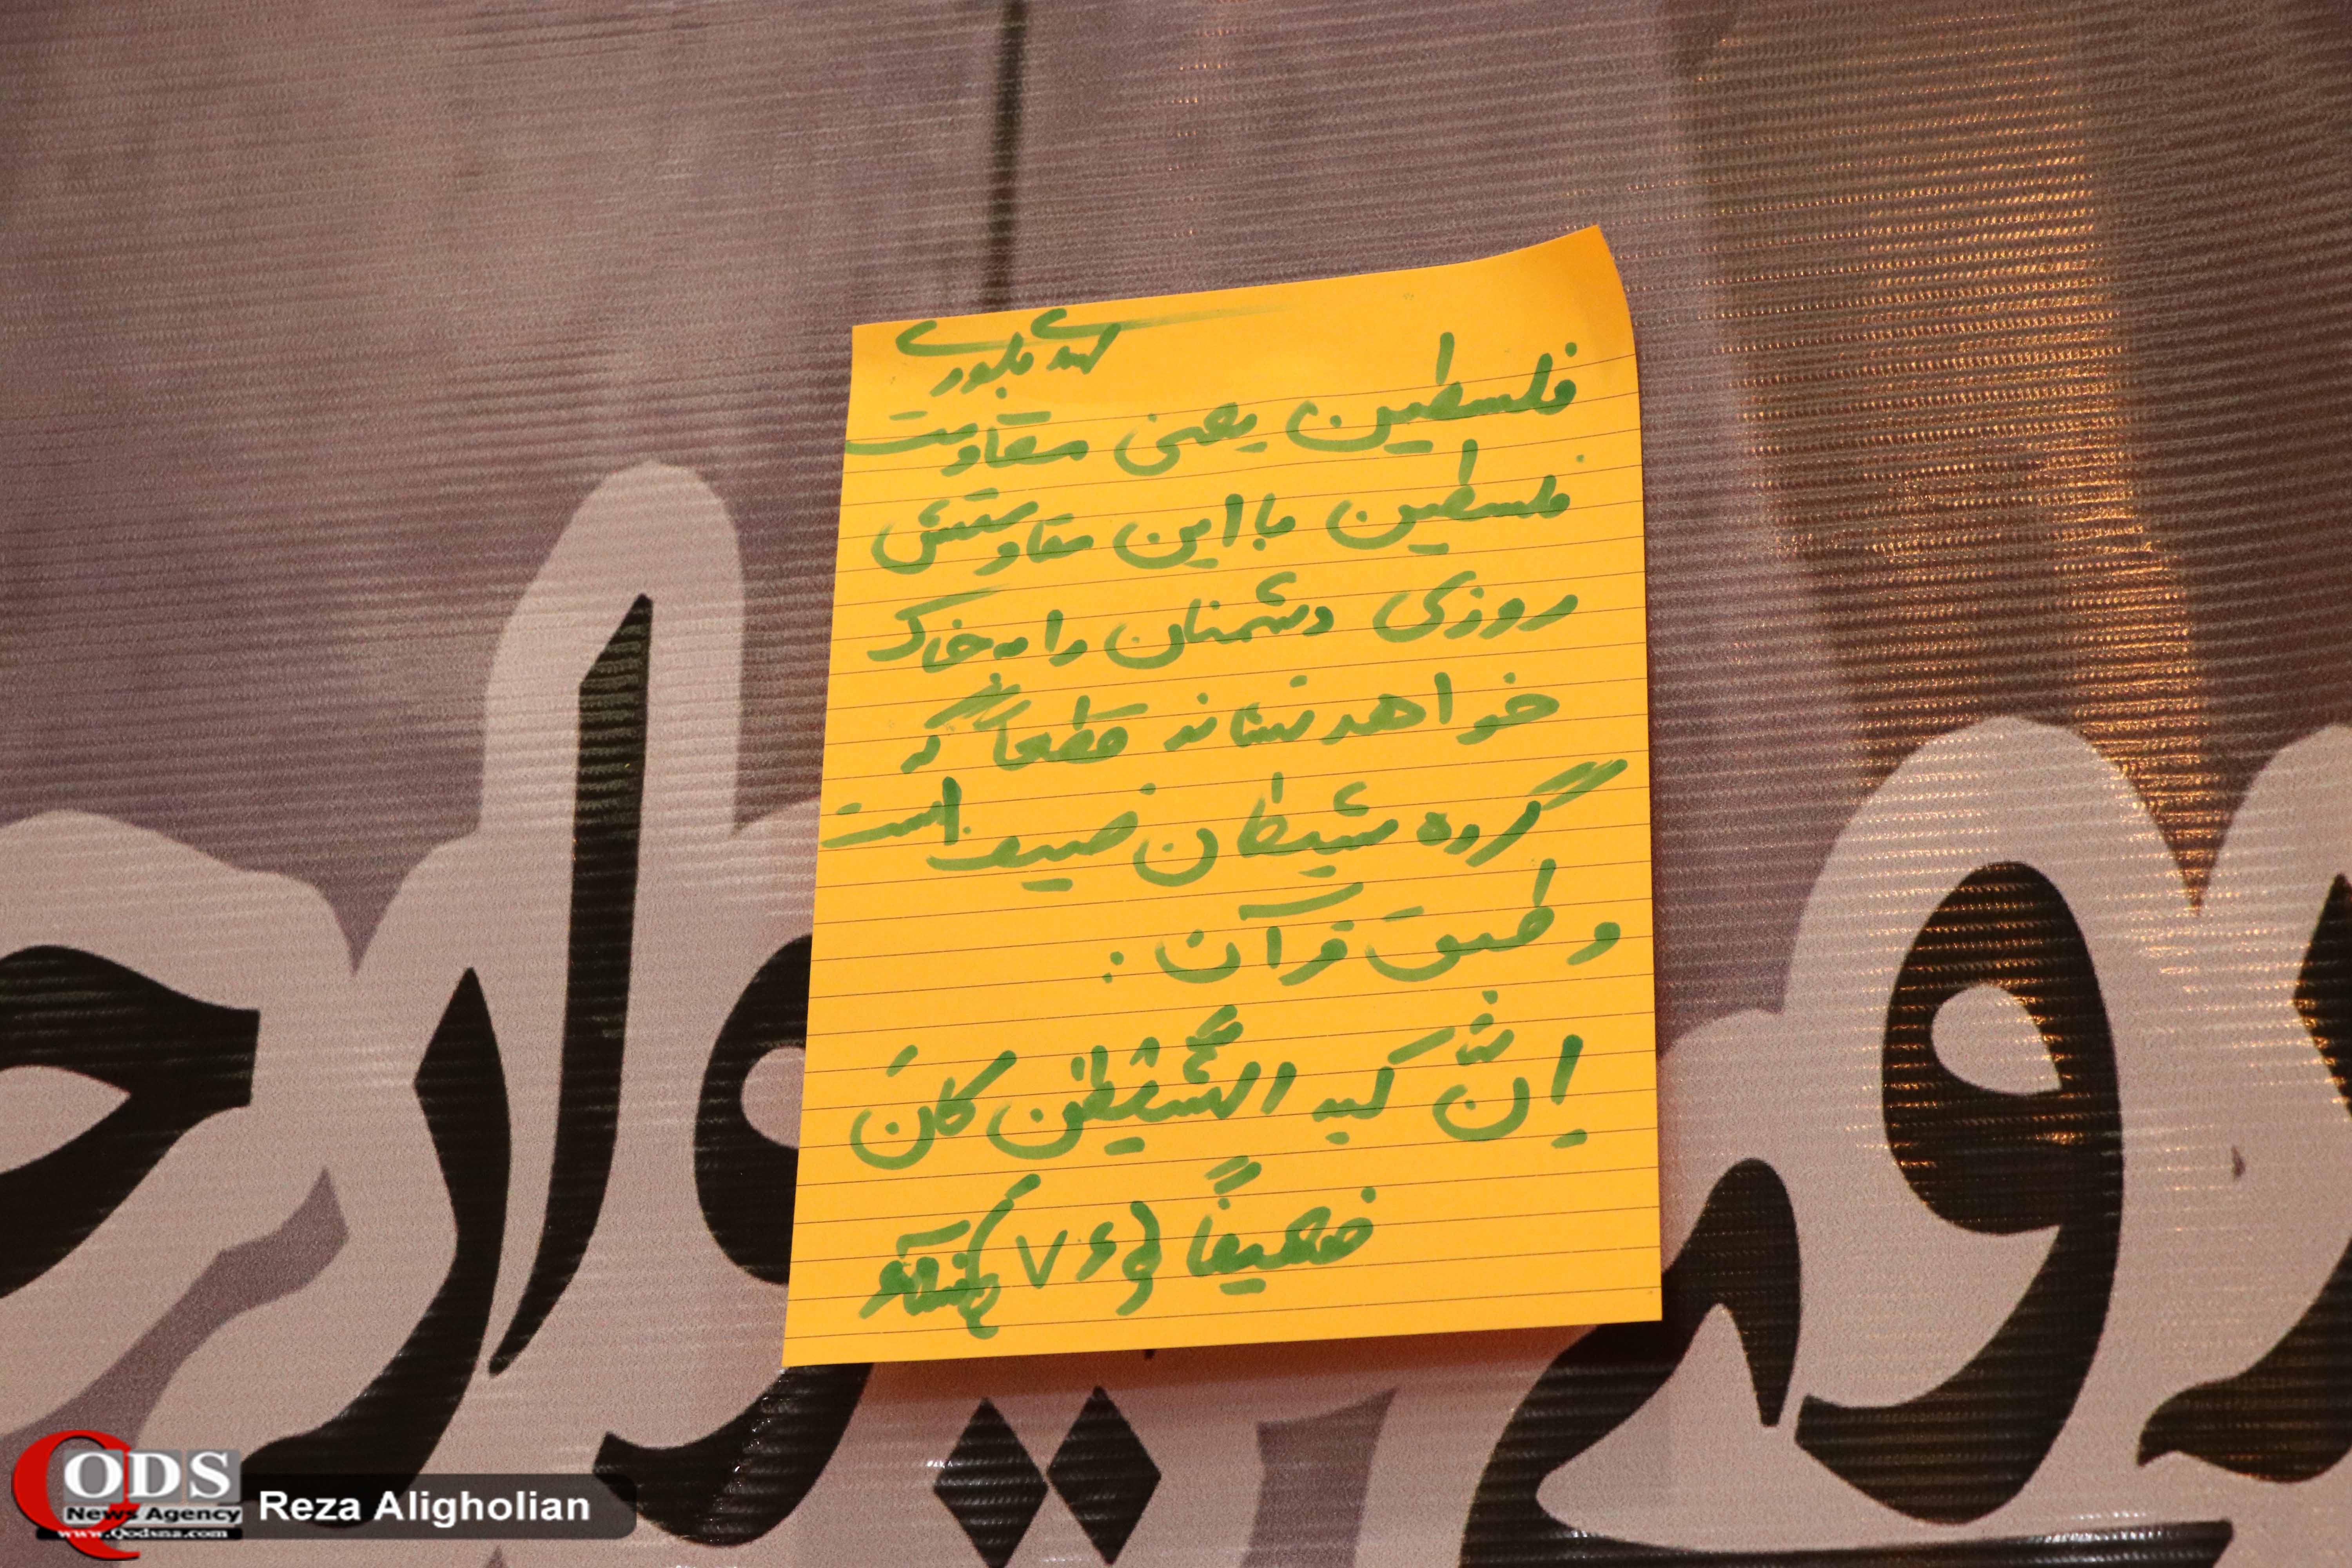 مهدی
فلسطین یعنی مقاومت
فلسطین با این مقاومتش
روزی دشمنان را به خاک
خواهد نشاند قطعاً که
گروه شیطان ضعیف است
و طبق قرآن :
اِنَّ کید الشَّیطٰن کانَ
ضعیفاً (۷۶ نساء)
QODS
News Agency
www.Qodsna.com
Reza Aligholian